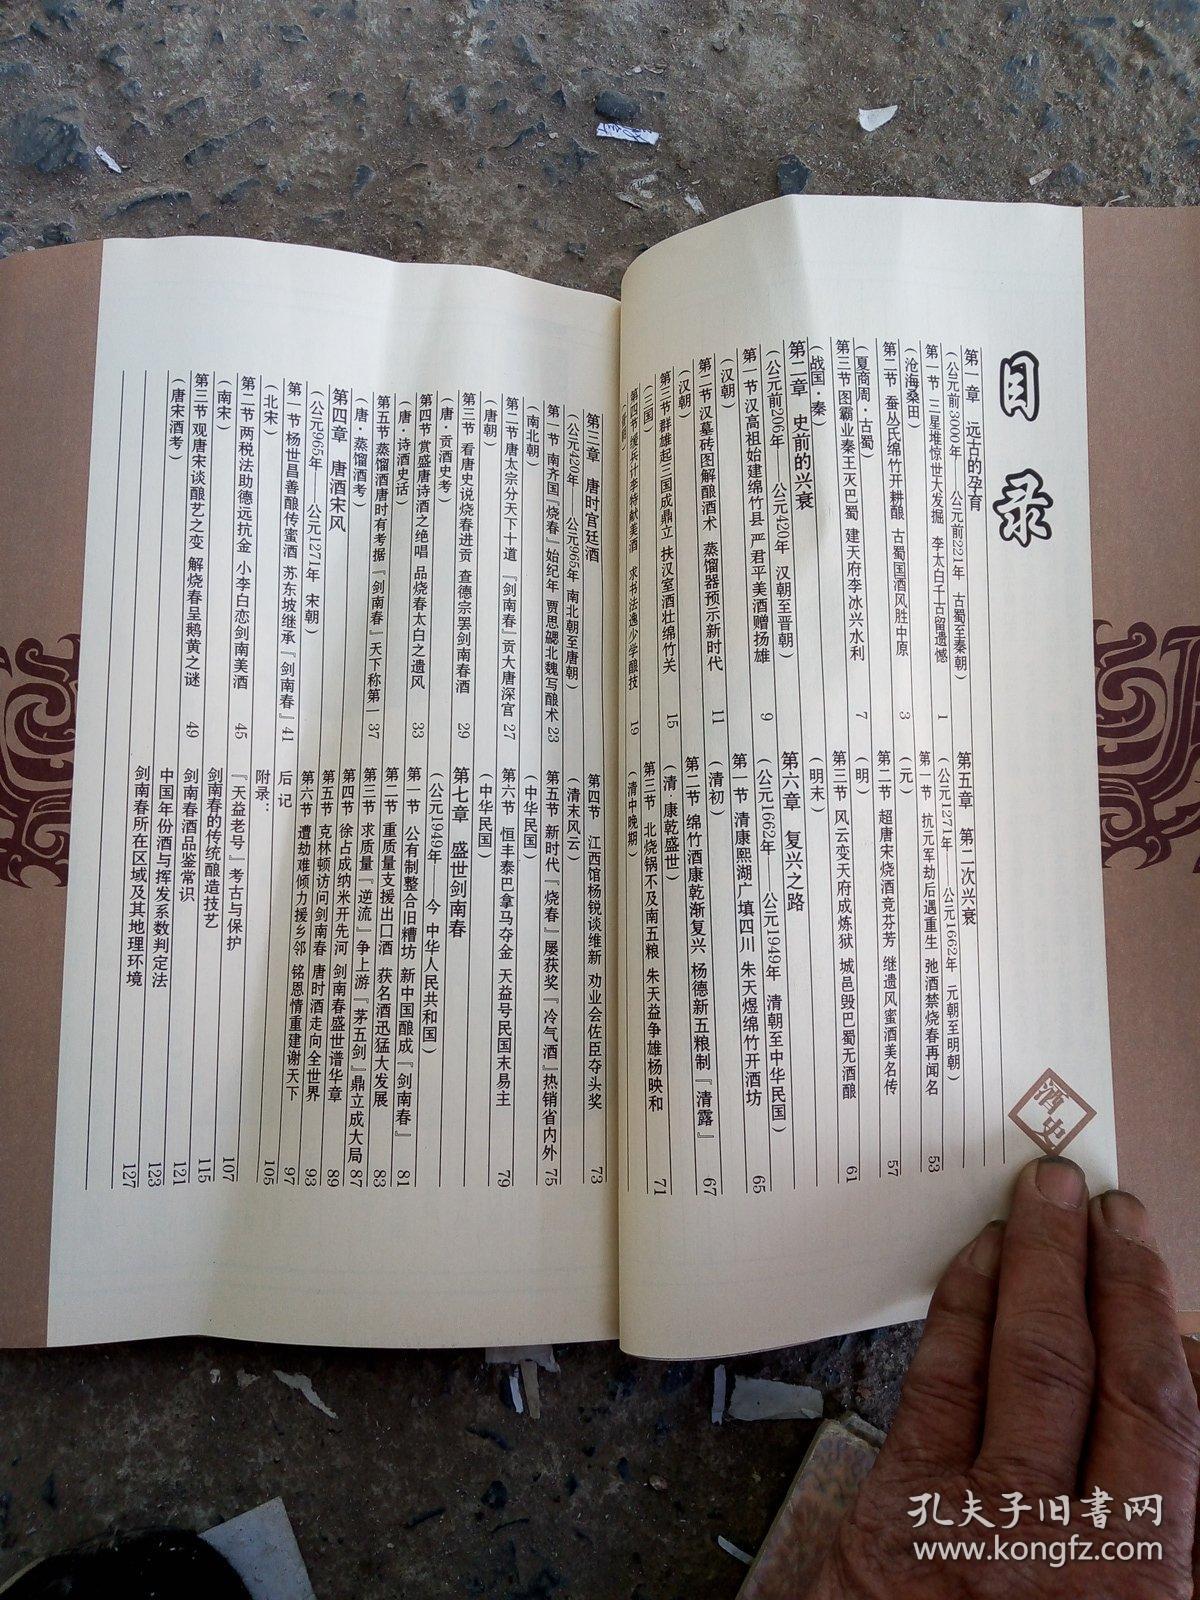 目录
第一章 远古的孕育
(公元前3000年——公元前221年 古蜀至秦朝)
第一节 三星堆惊世大发掘 李太白千古留遗憾 1
(沧海桑田)
第二节 蚕丛氏绵竹开耕酿 古蜀国酒风胜中原 3
(夏商周·古蜀)
第三节 图霸业秦王灭巴蜀 建天府李冰兴水利 7
(战国·秦)
第二章 史前的兴衰
(公元前206年——公元420年 汉朝至晋朝)
第一节 汉高祖始建绵竹县 严君平美酒赠扬雄 9
(汉朝)
第二节 汉墓砖图解酿酒术 蒸馏器预示新时代 11
(汉朝)
第三节 群雄起三国成鼎立 扶汉室酒壮绵竹关 15
(三国)
第四节 缓兵计李特献美酒 求书法逸少学酿技 19
第五章 第二次兴衰
(公元1271年——公元1662年 元朝至明朝)
第一节 抗元军劫后遇重生 弛酒禁烧春再闻名 53
(元)
第二节 超唐宋烧酒竞芬芳 继遗风蜜酒美名传 57
(明)
第三节 风云变天府成炼狱 城邑毁巴蜀无酒酿 61
(明末)
第六章 复兴之路
(公元1662年——公元1949年 清朝至中华民国)
第一节 清康熙湖广填四川 朱天煜绵竹开酒坊 65
(清初)
第二节 绵竹酒康乾渐复兴 杨德新五粮制『清露』 67
(清·康乾盛世)
第三节 北烧锅不及南五粮 朱天益争雄杨映和 71
(清中晚期)
酒史
第三章 唐时宫廷酒
(公元420年——公元965年 南北朝至唐朝)
第一节 南齐国『烧春』始纪年 贾思勰北魏写酿术 23
(南北朝)
第二节 唐太宗分天下十道 『剑南春』贡大唐深宫 27
(唐朝)
第三节 看唐史说烧春进贡 查德宗罢剑南春酒 29
(唐·贡酒史考)
第四节 赏盛唐诗酒之绝唱 品烧春太白之遗风 33
(唐·诗酒史话)
第五节 蒸馏酒唐时有考据 『剑南春』天下称第一 37
(唐·蒸馏酒考)
第四章 唐酒宋风
(公元965年——公元1271年 宋朝)
第一节 杨世昌善酿传蜜酒 苏东坡继承『剑南春』 41
(北宋)
第二节 两税法助德远抗金 小李白恋剑南美酒 45
(南宋)
第三节 观唐宋谈酿艺之变 解烧春呈鹅黄之谜 49
(唐宋酒考)
第四节 江西馆杨锐谈维新 劝业会佐臣夺头奖 73
(清末风云)
第五节 新时代『烧春』屡获奖 『冷气酒』热销省内外 75
(中华民国)
第六节 恒丰泰巴拿马夺金 天益号民国末易主 79
(中华民国)
第七章 盛世剑南春
(公元1949年——今 中华人民共和国)
第一节 公有制整合旧糟坊 新中国酿成『剑南春』 81
第二节 重质量支援出口酒 获名酒迅猛大发展 83
第三节 求质量『逆流』争上游 『茅五剑』鼎立成大局 87
第四节 徐占成纳米开先河 剑南春盛世谱华章 89
第五节 克林顿访问剑南春 唐时酒走向全世界 93
第六节 遭劫难倾力援乡邻 铭恩情重建谢天下 97
后记 105
附录:
『天益老号』考古与保护 107
剑南春的传统酿造技艺 115
剑南春酒品鉴常识 121
中国年份酒与挥发系数判定法 123
剑南春所在区域及其地理环境 127
孔夫子旧书网
www.kongfz.com